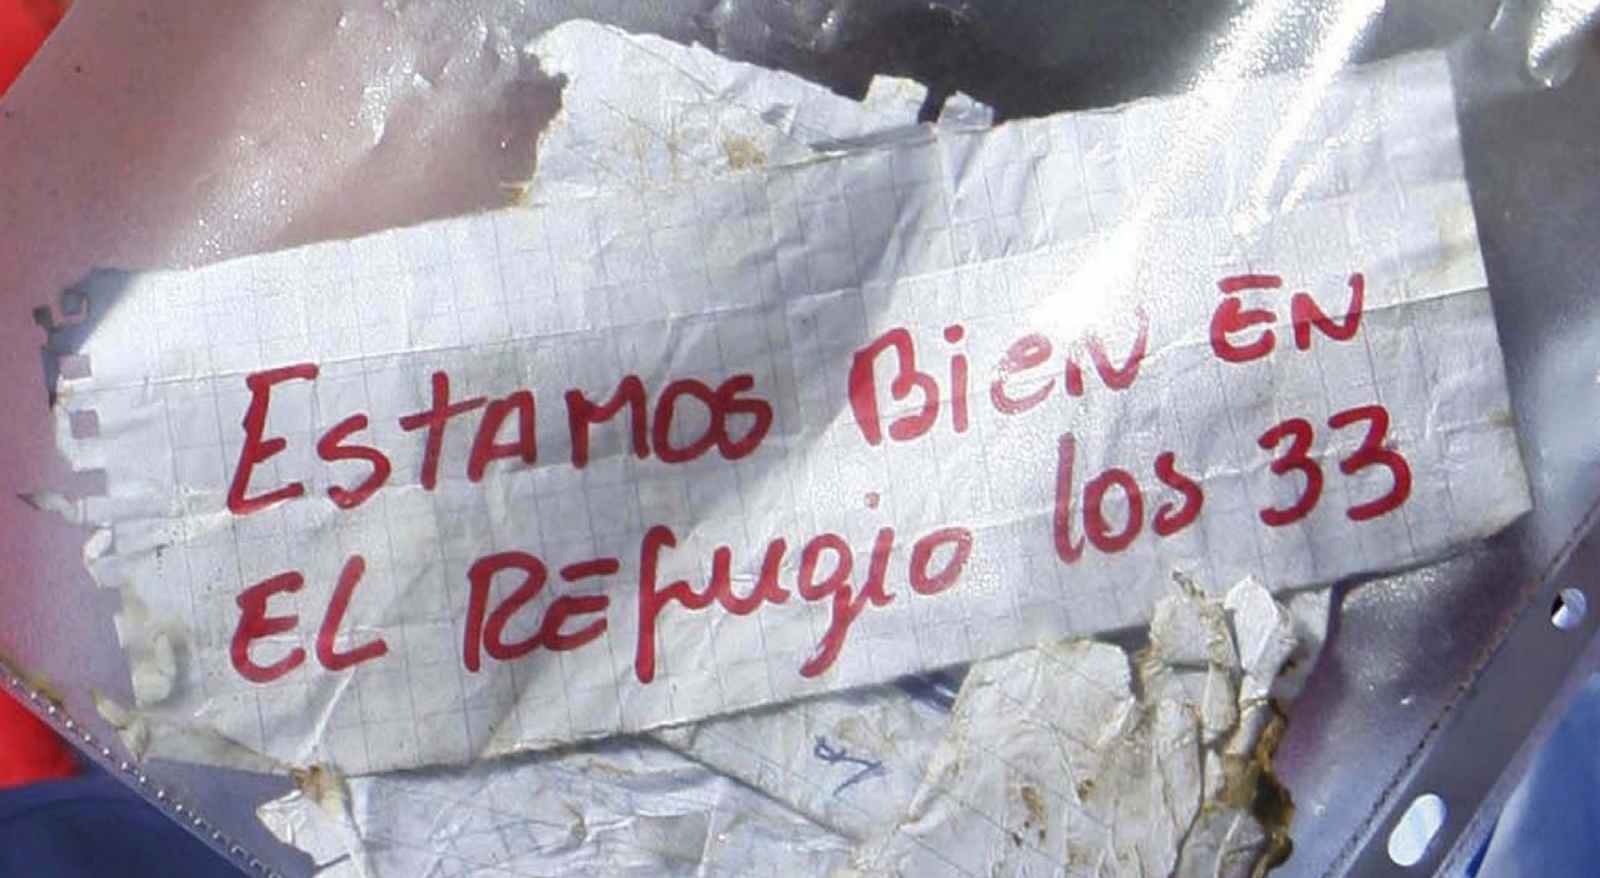 EstAMOS BiEN EN
EL REfugio los 33